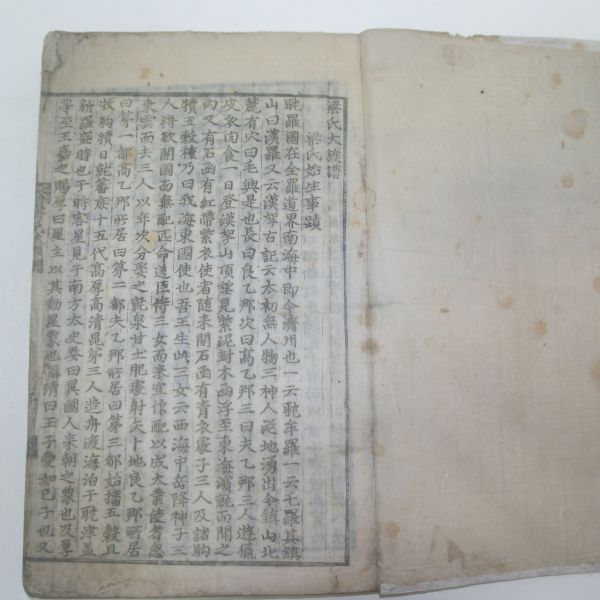 梁氏大族譜
梁氏始生事蹟
耽羅國在全羅道界南海中即今濟州也一云耽牟羅一云乇羅其鎮
山曰漢羅又云漢拏古記云太初無人物三神人從地湧出今鎮山北
麓有穴曰毛興是也長曰良乙那次曰高乙那三曰夫乙那三人遊獵
皮衣肉食一日登漢拏山頂望見紫泥封木函浮至東海濱就而開之
內又有石函有紅帶紫衣使者随来開石函有青衣處子三人及諸駒
犢五穀種乃曰我海東國使也吾王生此三女云西海中岳降神子三
人將欲開國而無配匹命遣臣侍三女而来宜作配以成大業使者忽
乘雲而去三人以年次分娶之就泉甘土肥處射矢卜地良乙那所居
曰第一都高乙那所居曰第二都夫乙那所居曰第三都始播五穀且
牧駒犢日就蕃庶十五代高厚高清昆第三人造舟渡海泊于耽津盖
新羅盛時也于時客星見于南方太史奏曰異國人来朝之象也及至
王嘉之賜厚曰星主以其動星象也清曰王子愛如己子也又